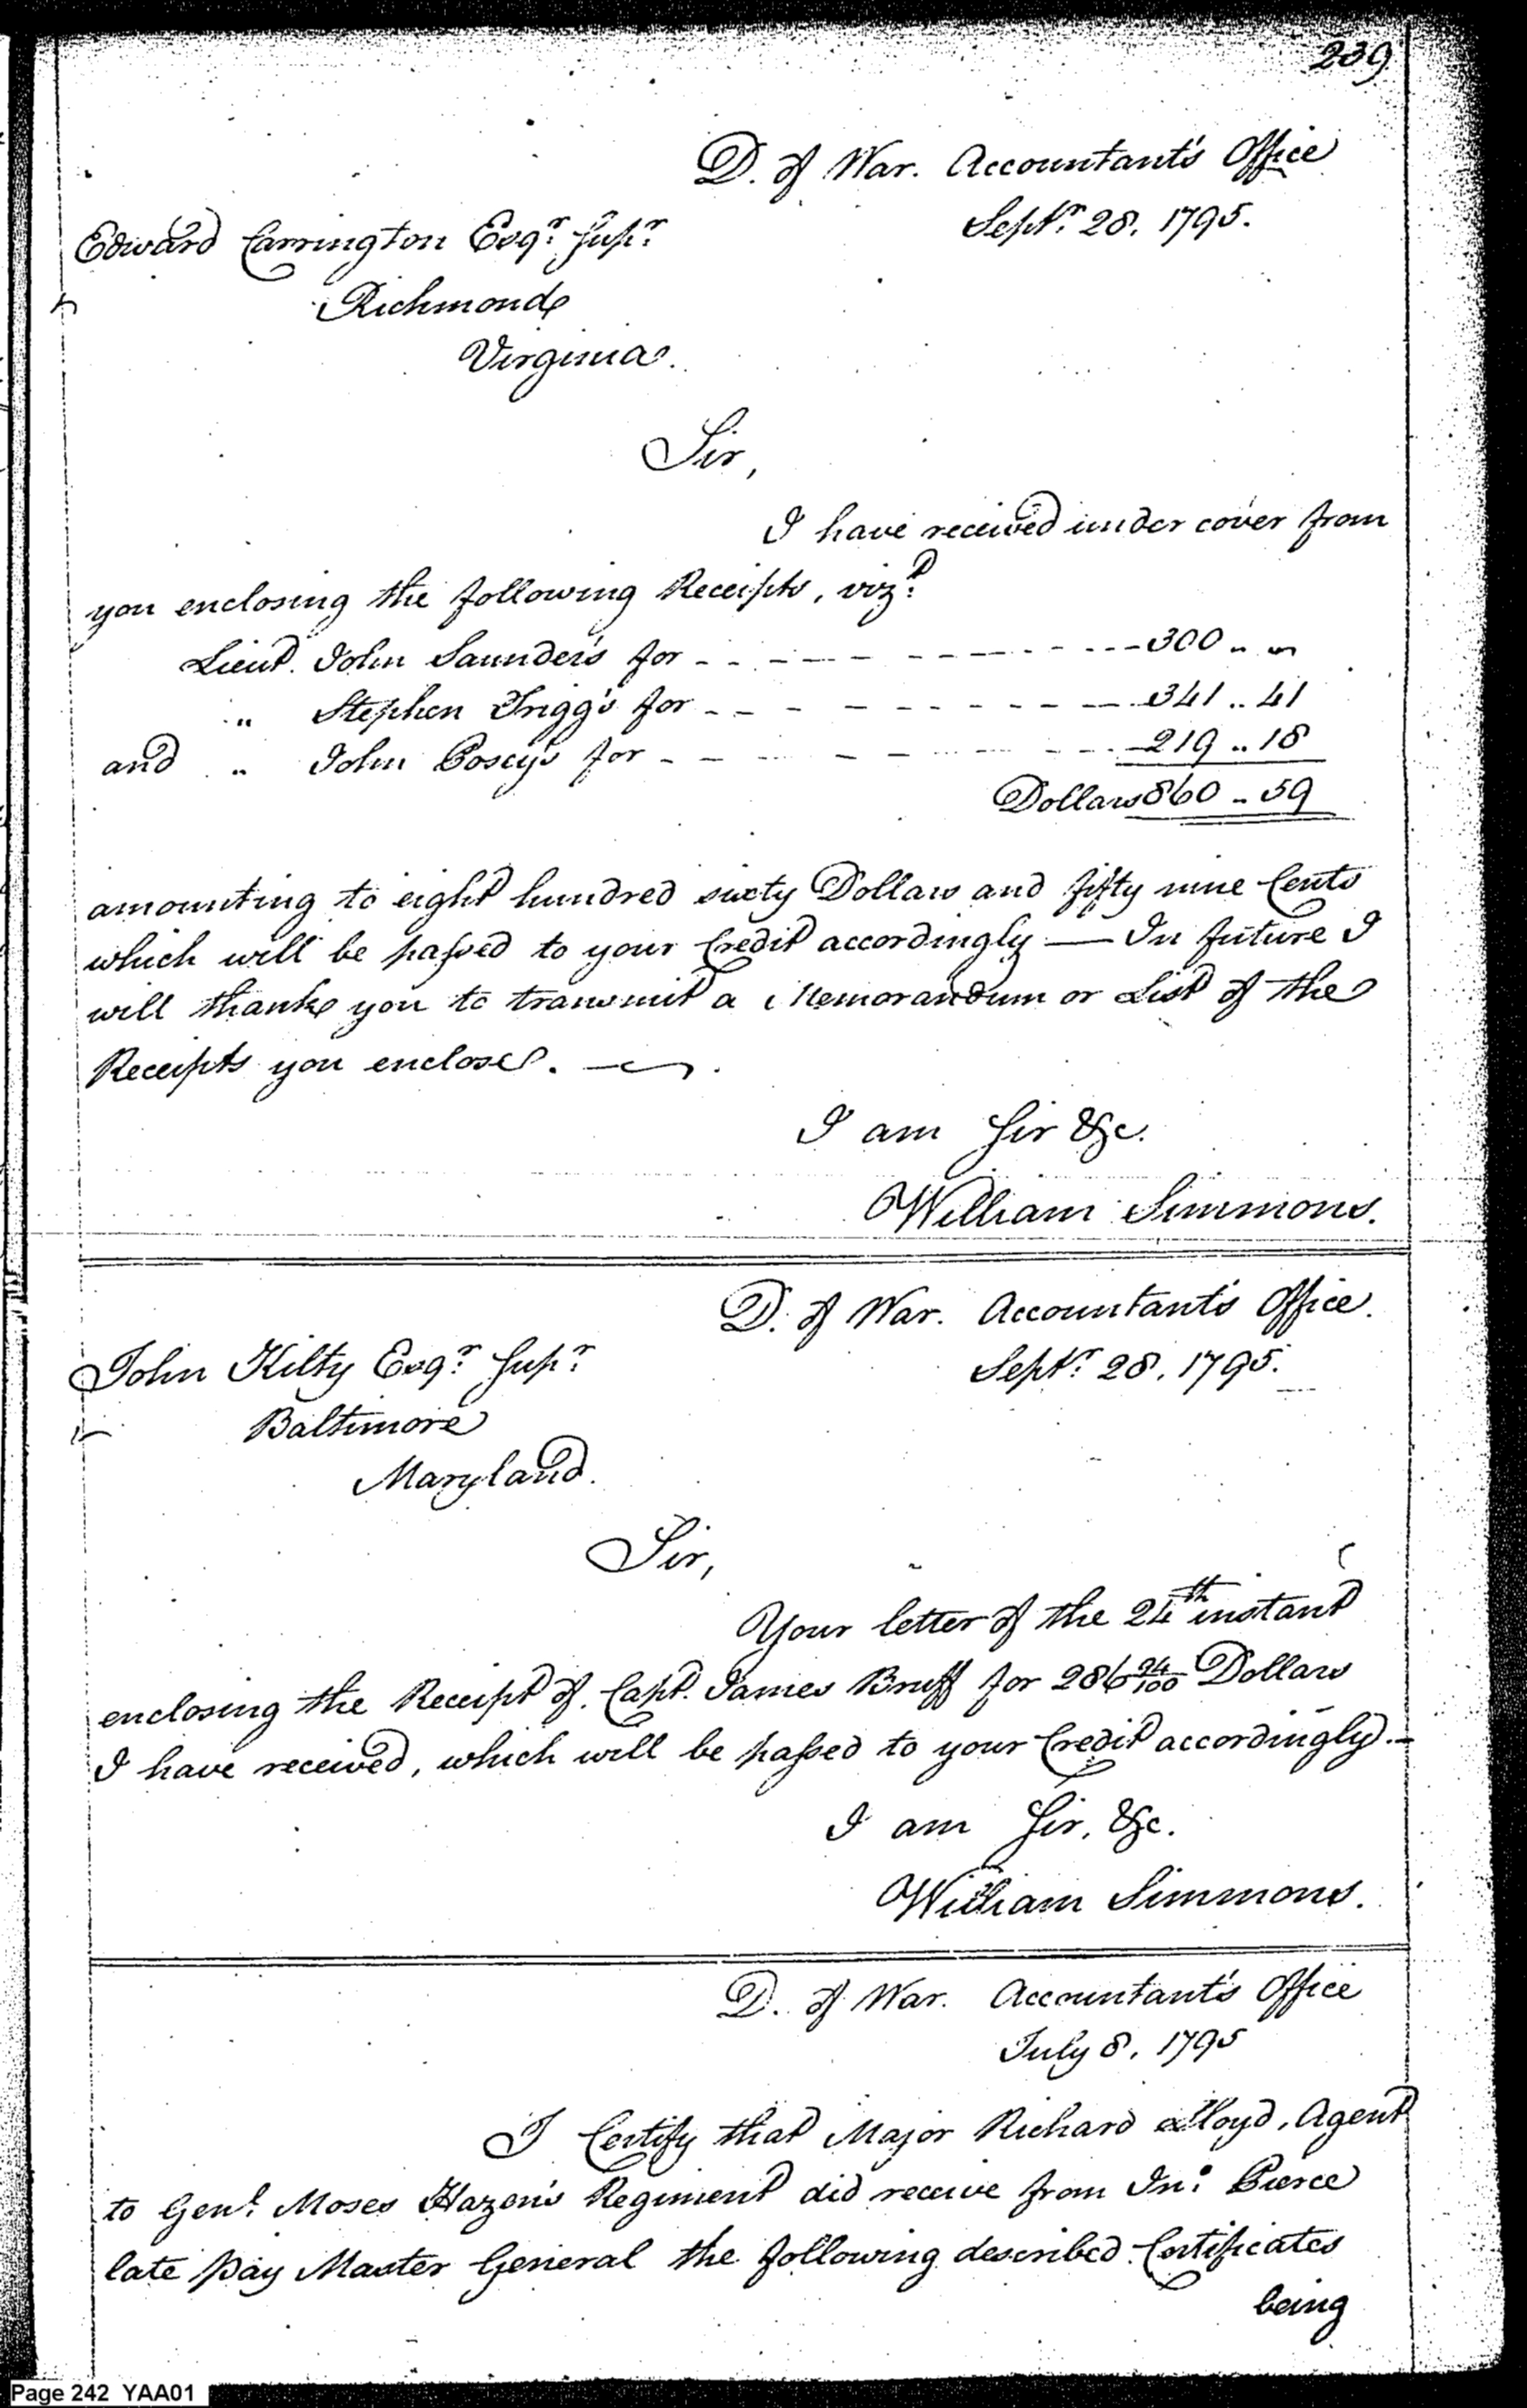 239
D. of War. Accountant's Office
Septr. 28, 1795.
Edward Carrington Esqr. Supr.
Richmond
Virginia.
Sir,
I have received under cover from
you enclosing the following Receipts, vizt.
Lieut. John Saunders's for - - - - - - - - - - - 300 " "
" Stephen Trigg's for - - - - - - - - - - 341 .. 41
and " John Posey's for - - - - - - - - - - 219 .. 18
Dollars 860 .. 59
amounting to eight hundred sixty Dollars and fifty nine Cents
which will be passed to your Credit accordingly — In future I
will thank you to transmit a Memorandum or List of the
Receipts you enclose. —
I am Sir &c.
William Simmons.
D. of War. Accountant's Office.
Septr. 28, 1795.
John Kilty Esqr. Supr.
Baltimore
Maryland.
Sir,
Your letter of the 24th instant
enclosing the Receipt of Capt. James Bruff for 286 24/100 Dollars
I have received, which will be passed to your Credit accordingly. —
I am Sir, &c.
William Simmons.
D. of War. Accountant's Office
July 8, 1795
I Certify that Major Richard Lloyd, Agent
to Genl. Moses Hazen's Regiment did receive from Jno. Pierce
late Pay Master General the following described Certificates
being
Page 242 YAA01